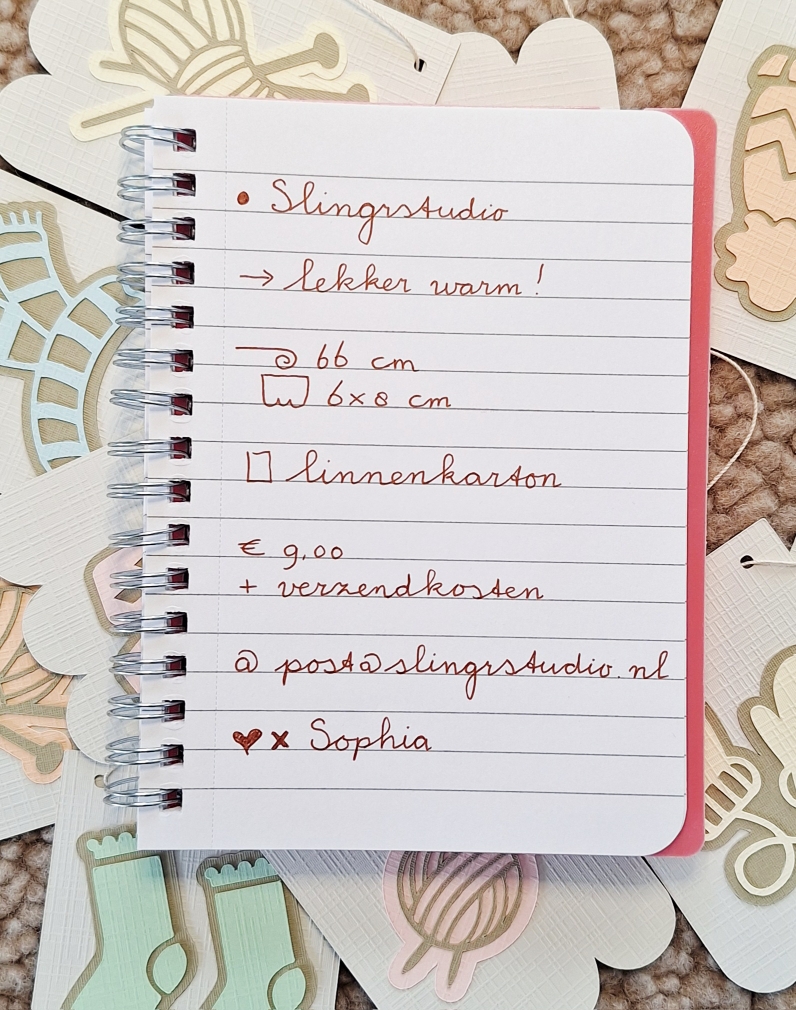 • Slingrstudio
→ lekker warm!
66 cm
6x8 cm
linnenkarton
€ 9,00
+ verzendkosten
@ post@slingrstudio.nl
♥ x Sophia